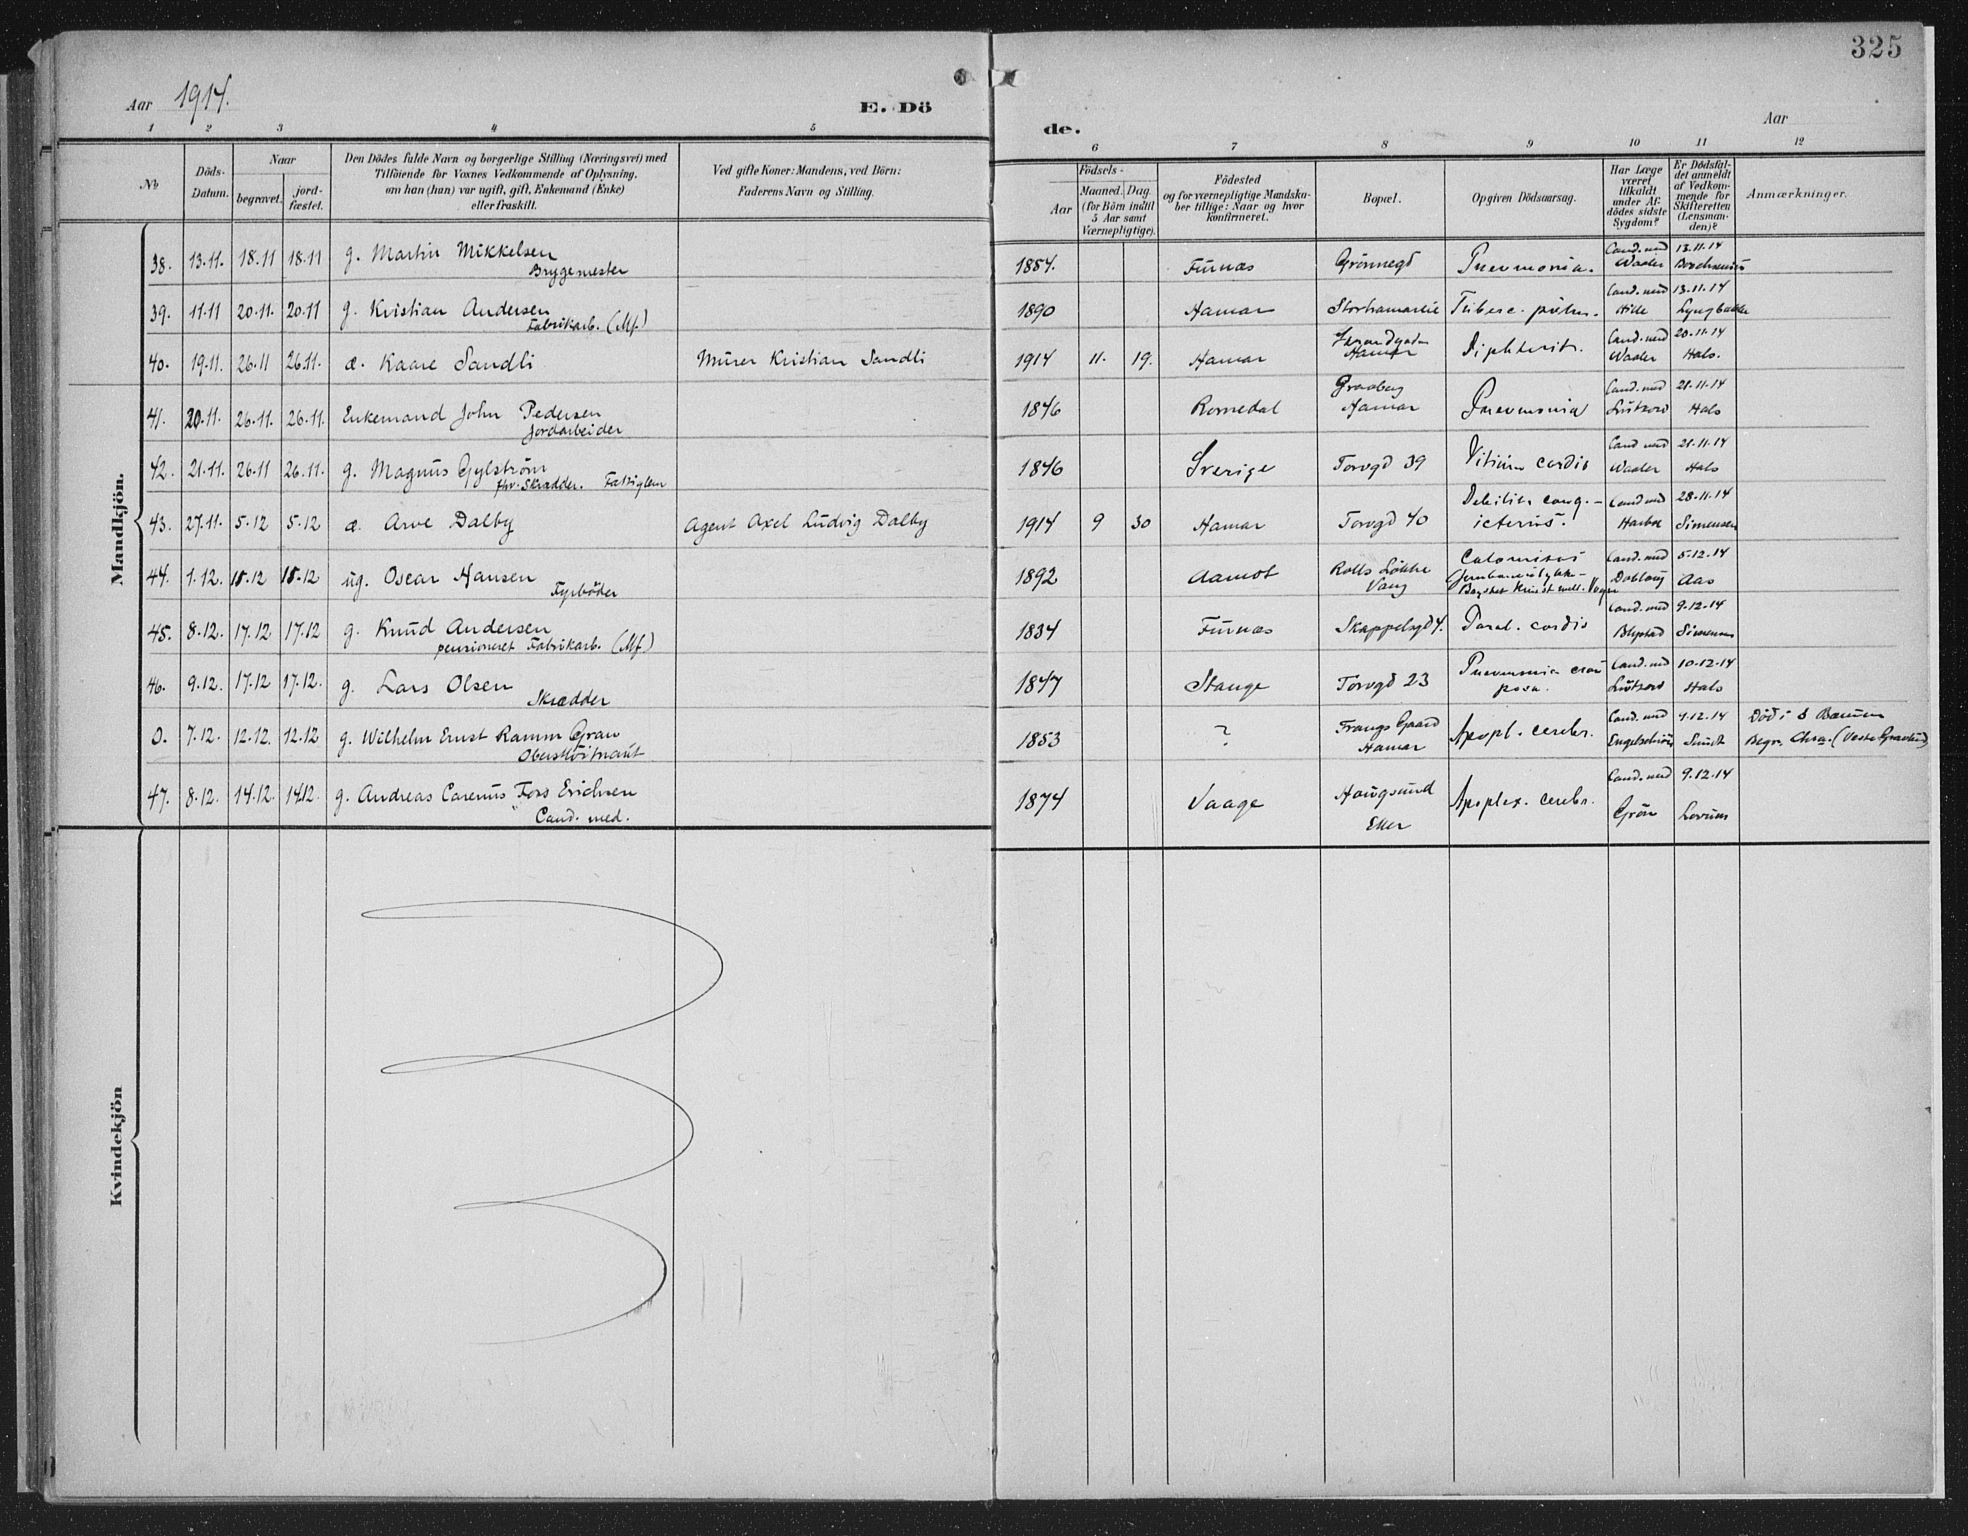 325
Aar 1914.
E. Dö
de.
Aar
1 2 3 4 5 6 7 8 9 10 11 12
No
Döds-
Datum.
Naar
begravet.
jord-
fæstet.
Den Dödes fulde Navn og borgerlige Stilling (Næringsvei) med
Tilföiende for Voxnes Vedkommende af Oplysning.
om han (hun) var ugift, gift, Enkemand (Enke)
eller fraskilt.
Ved gifte Koner: Mandens, ved Börn:
Faderens Navn og Stilling.
Födsels-
Aar
Maaned. Dag.
(for Börn indtil
5 Aar samt
Værnepligtige).
Födested
og for værnepligtige Mandska-
ber tillige: Naar og hvor
konfirmeret.
Bopæl.
Opgiven Dödsaarsag.
Har Læge
været
tilkaldt
under Af-
dödes sidste
Sygdom?
Er Dödsfal-
det anmeldt
af Vedkom-
mende for
Skifteretten
(Lensman-
den)?
Anmærkninger.
Mandkjön.
38. 13.11. 18.11 18.11 g. Martin Mikkelsen 1854. Furnæs Grönnegd Pneumonia. Cand. med 13.11.14
Bryggemester Waaler
39. 11.11 20.11. 20.11 g. Kristian Andersen 1890 Hamar Storhamarlie Tuberc. pulm. Cand. med 13.11.14
Fabrikarb. (Mf.) Hille Lyngbakke
40. 19.11. 26.11 26.11. æ. Kaare Sandli Murer Kristian Sandli 1914 11. 19. Hamar Hamar Diphterit. Cand. med 20.11.14
Waaler Hals.
41. 20.11. 26.11. 26.11. Enkemand John Pedersen 1846 Romedal Graaberg Hamar Pneumonia Cand. med 21.11.14
Jordarbeider Lützow Hals
42. 21.11. 26.11 26.11. g. Magnus Gylström 1846 Sverige Torvgd 39 Vitium cordis Cand med 21.11.14
fhv. Skrædder. Fattiglem Waaler Hals
43. 27.11. 5.12 5.12 æ. Arve Dalby Agent Axel Ludvig Dalby 1914 9 30 Hamar Torvgd 40 Debilitas cong. - Cand med 28.11.14
icterus. Harboe Simensen
44. 1.12. 15.12 15.12 ug. Oscar Hansen 1892 Aamot Rolls Løkke Cand. med 5.12.14
Fyrböder Vang Jernbaneulykke - Doblaug Aas
45. 8.12. 17.12 17.12 g. Knud Andersen 1834 Furnæs Skappelsgd 4. Paral. cordis Cand. med 9.12.14
pensioneret Fabrikarb. (Mf.) Blystad Simensen
46. 9.12. 17.12 17.12. g. Lars Olsen 1847 Stange Torvgd 23 Pneumonia crou Cand. med 10.12.14
Skrædder posa. Lützow Hals
0. 7.12. 12.12. 12.12 g. Wilhelm Ernst Ramm Gran 1853 ? Frangs Gaard Apopl. cerebr. Cand. med 7.12.14 Död i Bærum
Oberstlöitnant Hamar Begr. Chra. (Vestre Gravlund)
47. 8.12. 14.12. 14.12. g. Andreas Carenus Fors Erichsen 1874 Vaage Hougsund Apoplex. cerebr. Cand. med 9.12.14
Cand. med. Eker Grön
Kvindekjön